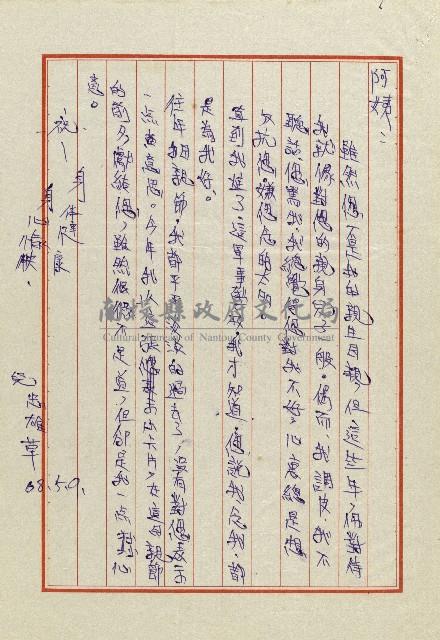 阿姨：
雖然您不是我的親生母親，但這些年，您對待
我就像對您的親身兒子一般。偶而，我調皮，我不
聽話，您罵我，我總覺得您對我不好，心裏總是想
反抗您，嫌您
直到我進了這軍事學校，我才知道，您說我念我，都
是為我好。
往年母親節，我都平平淡淡的過去了，沒有對您表示
一點意思。今年我，在這母親節
的前夕獻給您，雖然很微不足道，但卻是我一點點心
意。
祝
身體健康
心愉快。
兒志雄草
68.5.9.
南投縣政府文化局
Cultural Bureau of Nantou County Government